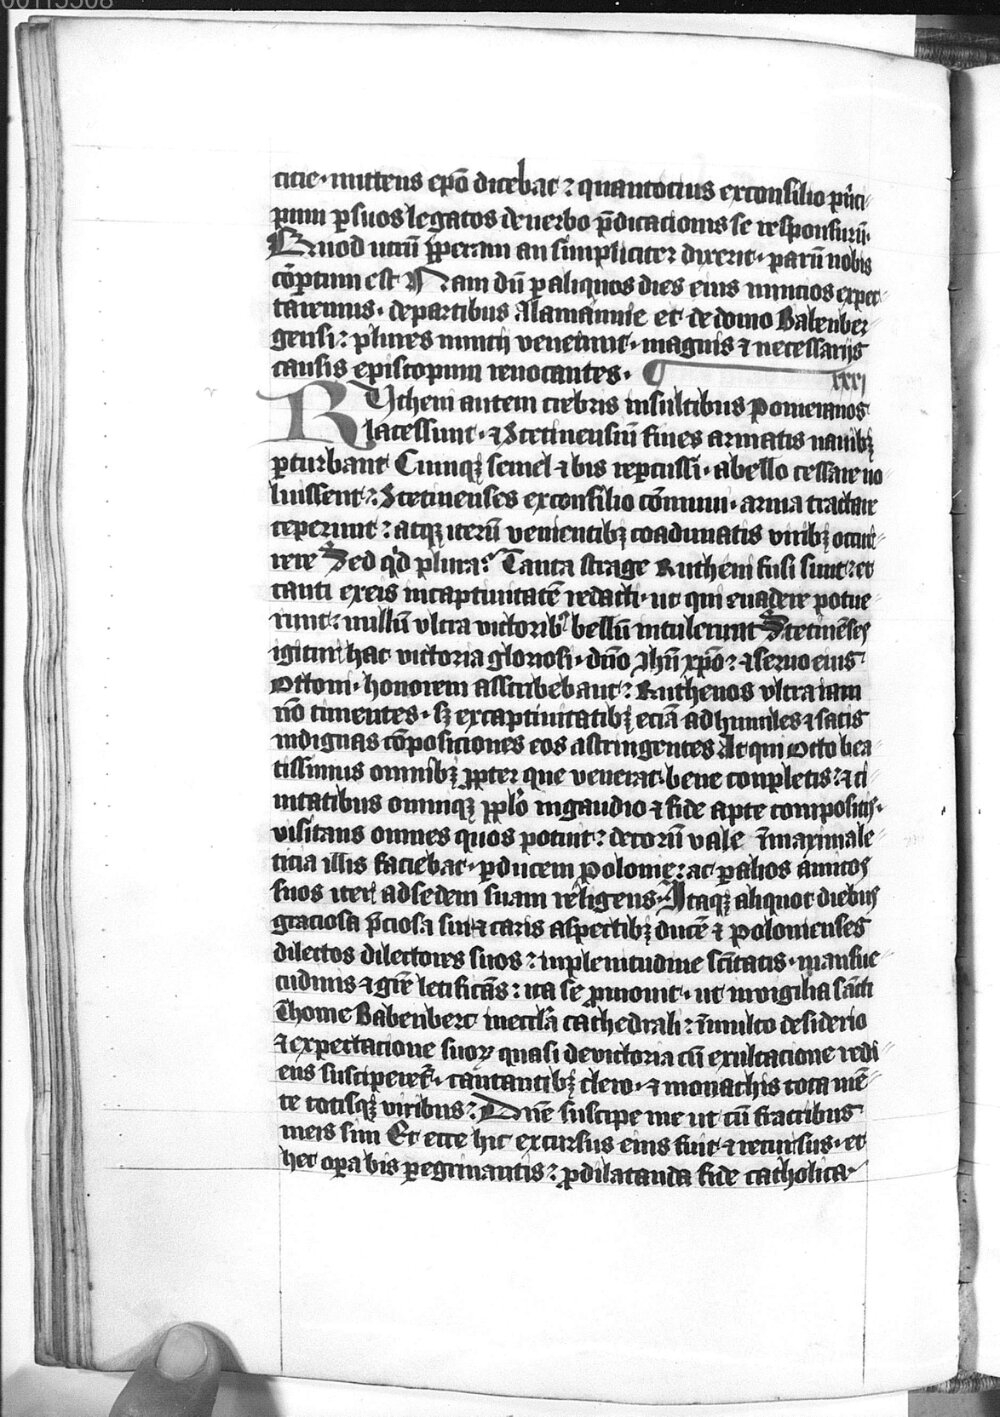 00115308
cicie · mittens epō dicebat ⁊ quantocius exconsilio p̄nci-
pum ꝑsuos legatos deuerbo p̄dicacionis se responsurū ·
Quod utrū ꝓperam an simpliciter dixerit · parū nobis
cōptum est Nam dū ꝑaliquos dies eius nuncios expec-
taremus · departibus Alamannie et dedomo Babenber-
gensi : plures nuncij venerunt · magnis ⁊ necessarijs
causis episcopum reuocantes · xxxi
RVtheni autem crebris insultibus pomeranos
lacessunt · ⁊ Stetinensiū fines armatis nauibꝫ
ꝑturbant Cumqꝫ semel ⁊ bis reꝑcussi · abello cessare no
luissent : Stetinenses exconsilio cōmuni · arma tractare
ceperunt : atqꝫ iterū venientibꝫ coadunatis viribꝫ occur-
rere Sed qͥd plura : Tanta strage Rutheni fusi sunt : et
tanti exeis incaptiuitatē redacti · ut qui euadere potue
runt : nullū vltra victoribꝰ bellū intulerunt Stetinēses
igitur hac victoria gloriosi · dn̄o Ihū xp̄o : ⁊ seruo eius
Ottoni · honorem asscribebant : Ruthenos vltra iam
nō timentes · sꝫ excaptiuitatibꝫ eciā adhumiles ⁊ satis
indignas cōposiciones eos astringentes At qui Otto bea
tissimus omnibꝫ ꝓpter que venerat bene conpletis : ⁊ ci
uitatibus omniqꝫ pplo ingaudio ⁊ fide apte compositis ·
visitans omnes quos potuit : decorū vale īmaxima le-
ticia illis faciebat · ꝑducem polonie : ac ꝑalios amicos
suos iter adsedem suam religens · Itaqꝫ aliquot diebus
graciosa p̄ciosa sui ⁊ caris aspectibꝫ ducē ⁊ polonienses
dilectos dilectores suos : inplenitudine scītatis · mansue-
tudinis ⁊ grē letificās : ita se ꝓmouit · ut invigilia sācti
Thome Babenberc in eccl̄a cathedrali : īmulto desiderio
⁊ expectacione suoꝝ quasi devictoria cū exultacione redi-
ens susciperet̄ · cantantibꝫ clero · ⁊ monachis tota mē-
te totisqꝫ viribus : Dn̄e suscipe me ut cū fratribus
meis sim Et ecce hic excursus eius fuit ⁊ recursus · et
hec oꝑa bis ꝑegrinantis : ꝓdilatanda fide catholica ·